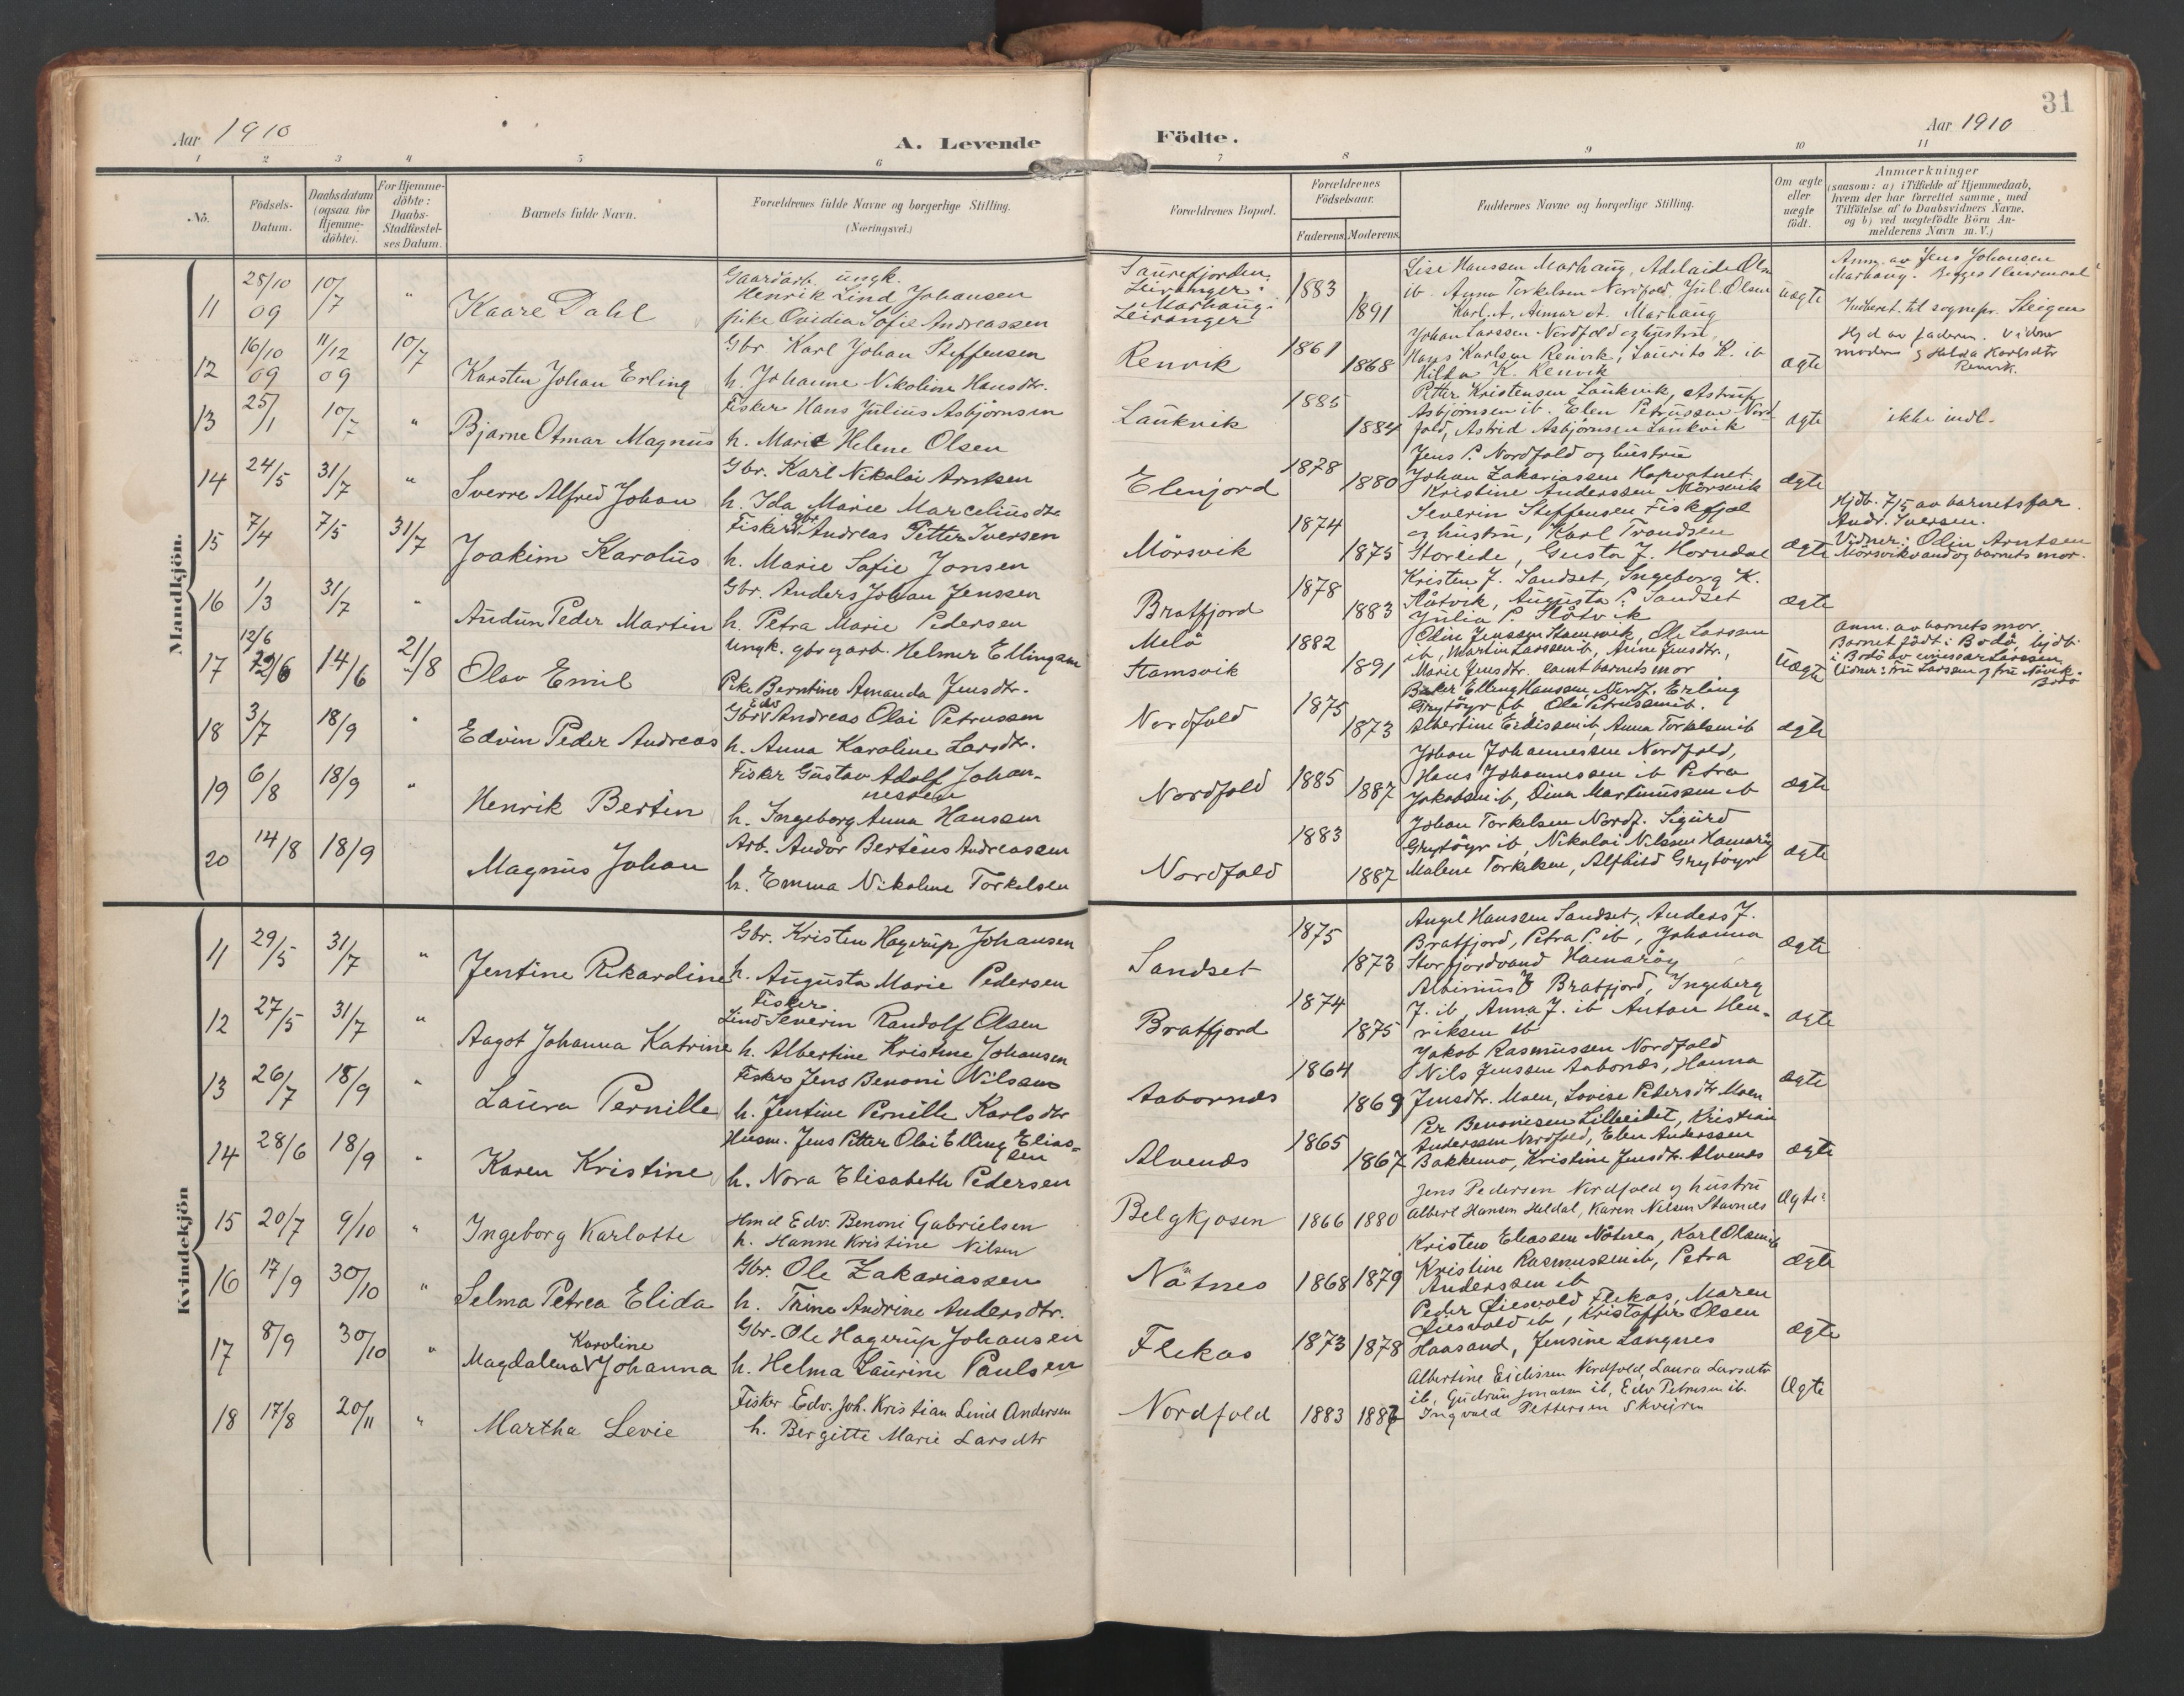 31
Aar 1910
A. Levende
Födte.
Aar 1910
1 2 3 4 5 6 7 8 9 10 11
Nö.
Födsels-Datum.
Daabsdatum (ogsaa for Hjemme-döbte).
For Hjemme-döbte: Daabs-Stadfæstel-ses Datum.
Barnets fulde Navn.
Forældrenes fulde Navne og borgerlige Stilling. (Næringsvei.)
Forældrenes Bopæl.
Forældrenes Födselsaar.
Faderens. Moderens.
Faddernes Navne og borgerlige Stilling.
Om ægte eller uægte födt.
Anmærkninger (saasom: a) i Tilfælde af Hjemmedaab, hvem der har forrettet samme, med Tilföielse af to Daabsvidners Navne, og b) ved uægtefödte Börn Anmelderens Navn m. V.)
Mandkjön.
11 28/10 09 10/7 " Kaare Dahl
Gaardarb. ungk.
Henrik Lind Johansen
pike Ovidia Sofie Andreassen
Leiranger
Marhaug
Leiranger
1883 1891
Lise Hanssen Marhaug, Adelaide Olsen
ib. Anna Torkelsen Nordfold, Jul. Olsen
Karl. A, Almar A. Marhaug
uægte
Anm. av Jens Johansen
Marhaug. Begges 1
Indberet. til sognepr. Steigen
12 16/10 09 11/12 09 10/7 Karsten Johan Erling
Gbr Karl Johan Steffensen
h. Johanne Nikoline Hansdtr.
Renvik
1861 1868
Johan Larssen Nordfold og hustru,
Hans Karlsen Renvik, Laurits K. ib
Hilda K. Renvik
ægte
Hjd av faderen. Vidner
moderen og Hilda Karlsdtr
Renvik.
13 25/1 10/7 " Bjarne Otmar Magnus
Fisker Hans Julius Asbjörnsen
h. Marie Helene Olsen
Laukvik
1885 1884
Petter Kristensen Laukvik, Astrup
Asbjörnsen ib. Elen Petrussen Nord
fold, Astrid Asbjörnsen Laukvik
ægte
ikke indl.
14 24/5 31/7 " Sverre Alfred Johan
Gbr. Karl Nikolai Arntsen
h. Ida Marie Marceliusdtr
Elenjord
1878 1880
Jens P. Nordfold og hustru
Johan Zakariassen
Kristine Anderssen Mörsvik
ægte
15 7/4 7/5 31/7 Joakim Karolus
Fisker gbr Andreas Petter Iversen
h. Marie Sofie Jonsen
Mörsvik
1874 1875
Severin Steffensen Fiskfjel
og hustru, Karl Trondsen
Storeide, Gusta J. Horndal
ægte
Hjdb. 7/5 av barnets far.
Andr. Iversen.
Vidner: Odin Arntsen
Mörsvikvand og barnets mor.
16 1/3 31/7 " Audun Peder Martin
Gbr. Anders Johan Jenssen
h. Petra Marie Pedersen
Bratfjord
1878 1883
Kristen J. Sandset, Ingeborg K.
Råtvik, Augusta P. Sandset
Julia P. Råtvik
ægte
17 12/6 14/6 21/8 Olav Emil
Ungk. gbr og arb. Helmer Ellingsen
Pike Berntine Amanda Jensdtr.
Melå
Stamsvik
1882 1891
Olin Jenssen Stamsvik, Ole Larsen
ib, Martin Larssen ib, Anne Jensdtr,
Marie Jensdtr. samt barnets mor
Uægte
Anm. av barnets mor.
Barnet födt i Bodö, hjdb.
i Bodö av emissær Larssen
Vidner: fru Larssen og fru
Bodö
18 3/7 18/9 " Edvin Peder Andreas
Gbr Edv Andreas Olai Petrussen
h. Anna Karoline Larsdtr.
Nordfold
1875 1873
Elling Hansen, Nordf. Erling
Gryтöyr ib, Ole Petrussen ib.
Albertine Eidissen ib, Anna Torkelsen ib
ægte
19 6/8 18/9 " Henrik Bertin
Fisker Gustav Adolf Johan-
nessen
h. Ingeborg Anna Hanssen
Nordfold
1885 1887
Johan Johannessen Nordfold,
Hans Johannessen ib Petra
Jakobsen ib, Dina Martinussen ib
ægte
20 14/8 18/9 Magnus Johan
Arb. Andor Bertéus Andreassen
h. Emma Nikoline Torkelsen
Nordfold
1883 1887
Johan Torkelsen Nordf. Sigurd
Grytöyr ib, Nikolai Nilssen Hamaröy
Malene Torkelsen, Alfhild Grytöyr
ægte
Kvindekjön
11 29/5 31/7 " Jentine Rikardine
Gbr. Kristen Hagerup Johansen
h. Augusta Marie Pedersen
Sandset
1875 1873
Angel Hanssen Sandset, Anders J.
Bratfjord, Petra P. ib, Johanna
Storfjordvand Hamaröy
ægte
12 27/5 31/7 " Aagot Johanna Katrine
Fisker
Lind Severin Randolf Olsen
h. Albertine Kristine Johansen
Bratfjord
1874 1875
Albinius Bratfjord, Ingeberg
J. ib, Anna J. ib Anton Hen-
riksen ib
ægte
13 26/7 18/9 " Laura Pernille
Fisker Jens Benoni Nilsen
h. Jentine Pernille Karlsdtr
Aabornes
1864 1869
Jakob Rasmussen Nordfold
Nils Jenssen Aabornes, Hanna
Jensdtr. Moen, Lovise Pedersdtr Moen
ægte
14 28/6 18/9 " Karen Kristine
Husm. Jens Petter Olai Elling Elias-
sen
h. Nora Elisabeth Pedersen
Alvenes
1865 1867
Per Benonisen Lilleeidet, Kristian
Anderssen Nordfold, Elen Anderssen
Bakkemo, Kristine Jensdtr. Alvenes
ægte
15 20/7 9/10 " Ingeborg Karlotte
Hmd Edv. Benoni Gabrielsen
h. Hanne Kristine Nilsen
Belgkjosen
1866 1880
Jens Pedersen Nordfold og hustru
Albert Hansen Heldal, Karen Nilsen Stavnes
Ægte
16 17/9 30/10 " Selma Petrea Elida
Gbr. Ole Zakariassen
h. Trine Andrine Andersdtr.
Nätnes
1868 1879
Kristen Eliassen Nötnes, Karl Olsen ib
Kristine Rasmussen ib, Petra
Anderssen ib
ægte
17 8/9 30/10 " Magdalena Karoline Johanna
Gbr. Ole Hagerup Johansen
h. Helma Laurine Paulsen
Flekas
1873 1878
Peder Liesvold Flekas, Maren
Liesvold ib, Kristoffer Olsen
Haasand, Jensine Langnes
ægte
18 17/8 20/11 " Martha Levie
Fisker Edv. Joh. Kristian Lind Andersen
h. Bergitte Marie Larsdtr
Nordfold
1883 1886
Albertine Eidissen Nordfold, Laura Larsdtr
ib, Gudrun Jonassen ib, Edv Petrusen ib.
Ingvald Pettersen Skveiren
Ægte